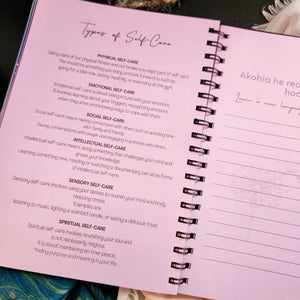 Types of Self-Care
PHYSICAL SELF-CARE
Taking care of our physical fitness and our bodies is a major part of self-care.
This should be something you enjoy and look forward to such as
going for a bike ride, eating healthily, or exercising at the gym.
EMOTIONAL SELF-CARE
Emotional self-care is about being in tune with your emotions.
It involves learning about your triggers, recognizing emotions
when they arise and knowing ways to care with them.
SOCIAL SELF-CARE
Social self-care means making connections with others such as spending time
with family and friends,
having conversations with people and engaging in activities with others.
INTELLECTUAL SELF-CARE
Intellectual self-care means doing something that challenges your mind and
grows your knowledge.
Learning something new, reading or watching a documentary can all be forms
of intellectual self-care.
SENSORY SELF-CARE
Sensory self-care involves using your senses to nourish your mind and body,
reducing stress.
Examples are:
listening to music, lighting a scented candle, or eating a delicious treat.
SPIRITUAL SELF-CARE
Spiritual self-care involves nourishing your soul and
is not necessarily religious.
It is about maintaining an inner peace,
finding purpose and meaning in your life.
Akohia he re
Learn a new lang